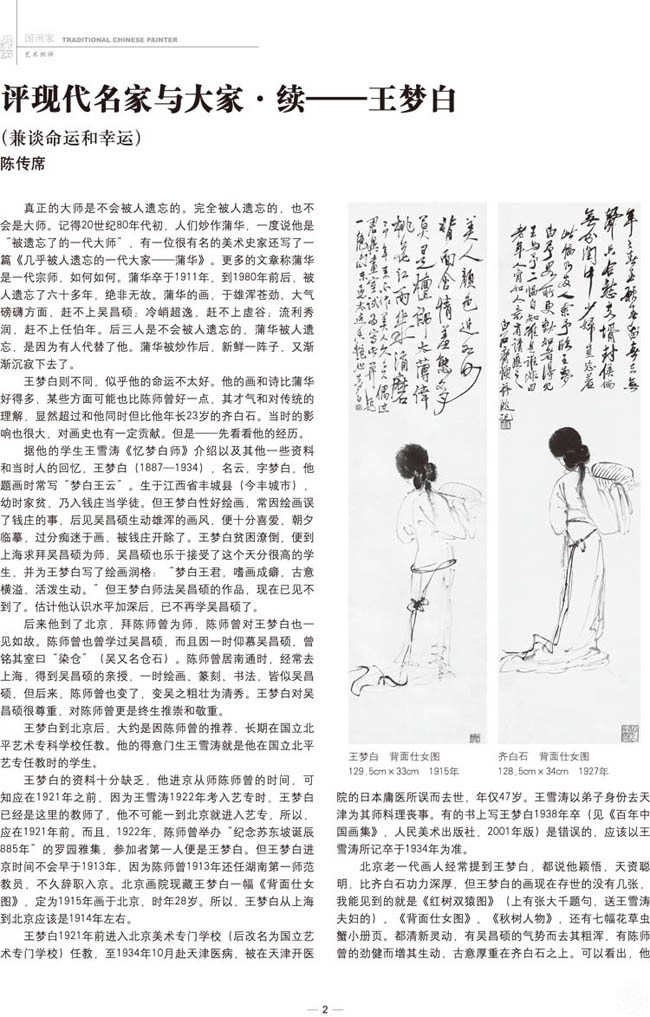 国画家 TRADITIONAL CHINESE PAINTER
艺术批评
评现代名家与大家·续——王梦白
（兼谈命运和幸运）
陈传席
真正的大师是不会被人遗忘的。完全被人遗忘的，也不
会是大师。记得20世纪80年代初，人们炒作蒲华，一度说他是
“被遗忘了的一代大师”，有一位很有名的美术史家还写了一
篇《几乎被人遗忘的一代大家——蒲华》。更多的文章称蒲华
是一代宗师，如何如何。蒲华卒于1911年，到1980年前后，被
人遗忘了六十多年，绝非无故。蒲华的画，于雄浑苍劲、大气
磅礴方面，赶不上吴昌硕；冷峭超逸，赶不上虚谷；流利秀
润，赶不上任伯年。后三人是不会被人遗忘的，蒲华被人遗
忘，是因为有人代替了他。蒲华被炒作后，新鲜一阵子，又渐
渐沉寂下去了。
王梦白则不同，似乎他的命运不太好。他的画和诗比蒲华
好得多，某些方面可能也比陈师曾好一点，其才气和对传统的
理解，显然超过和他同时但比他年长23岁的齐白石。当时的影
响也很大，对画史也有一定贡献。但是——先看看他的经历。
据他的学生王雪涛《忆梦白师》介绍以及其他一些资料
和当时人的回忆，王梦白（1887—1934），名云，字梦白，他
题画时常写“梦白王云”。生于江西省丰城县（今丰城市），
幼时家贫，乃入钱庄当学徒。但王梦白性好绘画，常因绘画误
了钱庄的事，后见吴昌硕生动雄浑的画风，便十分喜爱，朝夕
临摹，过分痴迷于画，被钱庄开除了。王梦白贫困潦倒，便到
上海求拜吴昌硕为师，吴昌硕也乐于接受了这个天分很高的学
生，并为王梦白写了绘画润格：“梦白王君，嗜画成癖，古意
横溢，活泼生动。”但王梦白师法吴昌硕的作品，现在已见不
到了。估计他认识水平加深后，已不再学吴昌硕了。
后来他到了北京，拜陈师曾为师，陈师曾对王梦白也一
见如故。陈师曾也曾学过吴昌硕，而且因一时仰慕吴昌硕，曾
铭其室曰“染仓”（吴又名仓石）。陈师曾居南通时，经常去
上海，得到吴昌硕的亲授，一时绘画、篆刻、书法，皆似吴昌
硕，但后来，陈师曾也变了，变吴之粗壮为清秀。王梦白对吴
昌硕很尊重，对陈师曾更是终生推崇和敬重。
王梦白到北京后，大约是因陈师曾的推荐，长期在国立北
平艺术专科学校任教。他的得意门生王雪涛就是他在国立北平
艺专任教时的学生。
王梦白的资料十分缺乏，他进京从师陈师曾的时间，可
知应在1921年之前，因为王雪涛1922年考入艺专时，王梦白
已经是这里的教师了，他不可能一到北京就进入艺专，所以，
应在1921年前。而且，1922年，陈师曾举办“纪念苏东坡诞辰
885年”的罗园雅集，参加者第一人便是王梦白。但王梦白进
京时间不会早于1913年，因为陈师曾1913年还任湖南第一师范
教员，不久辞职入京。北京画院现藏王梦白一幅《背面仕女
图》，定为1915年画于北京，时年28岁。所以，王梦白从上海
到北京应该是1914年左右。
王梦白1921年前进入北京美术专门学校（后改名为国立艺
术专门学校）任教，至1934年10月赴天津医病，被在天津开医
王梦白 背面仕女图
129.5cm×33cm 1915年
齐白石 背面仕女图
128.5cm×34cm 1927年
院的日本庸医所误而去世，年仅47岁。王雪涛以弟子身份去天
津为其师料理丧事。有的书上写王梦白1938年卒（见《百年中
国画集》，人民美术出版社，2001年版）是错误的，应该以王
雪涛所记卒于1934年为准。
北京老一代画人经常提到王梦白，都说他颖悟，天资聪
明，比齐白石功力深厚，但王梦白的画现在存世的没有几张，
我能见到的就是《红树双猿图》（上有张大千题句，送王雪涛
夫妇的）、《背面仕女图》、《秋树人物》，还有七幅花草虫
蟹小册页。都清新灵动，有吴昌硕的气势而去其粗浑，有陈师
曾的劲健而增其生动，古意厚重在齐白石之上。可以看出，他
— 2 —